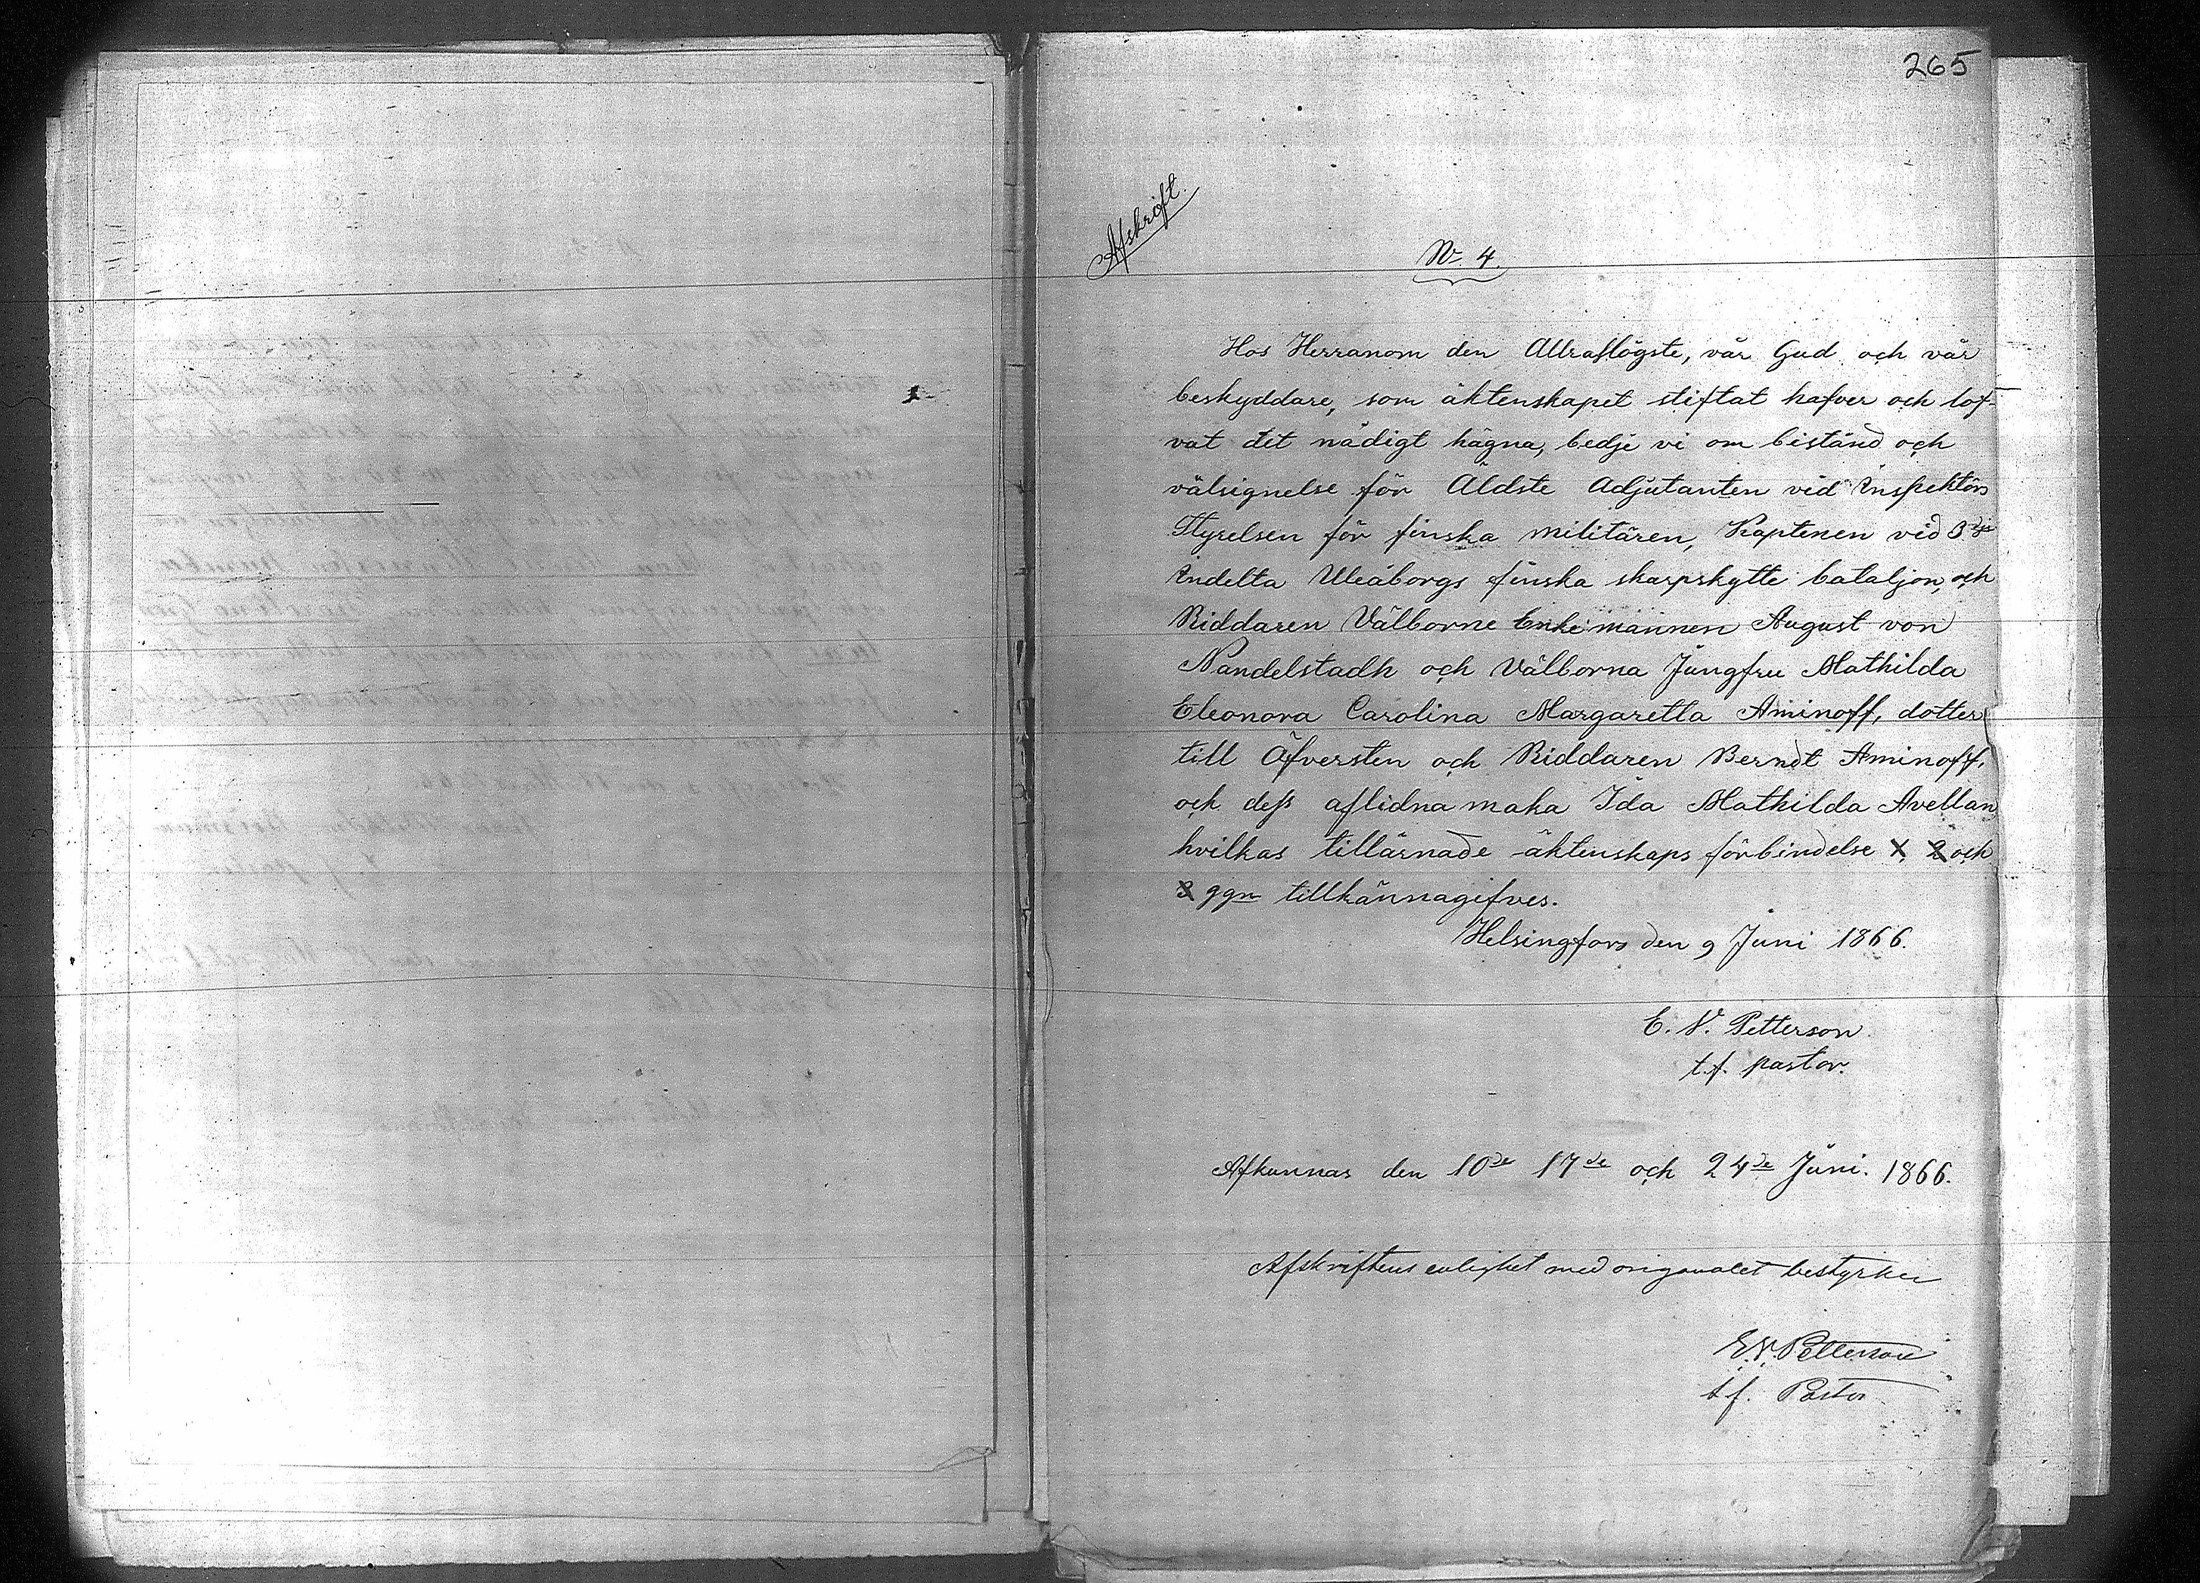 265
Afskrift.
No. 4.
Hos Herranom den Allrahögste, vår Gud och vår
beskyddare, som äktenskapet stiftat hafver och lof-
vat det nådigt hägna, bedje vi om bistånd och
välsignelse för Äldste Adjutanten vid Inspektörs
Styrelsen för finska militären, Kaptenen vid 3dje
indelta Uleåborgs finska skarpskytte bataljon, och
Riddaren Välborne Enkemannen August von
Nandelstadh och Välborna Jungfru Mathilda
Eleonora Carolina Margaretta Aminoff, dotter
till Öfversten och Riddaren Berndt Aminoff,
och dess aflidna maka Ida Mathilda Avellan
hvilkas tillärnade äktenskaps förbindelse 1, 2 och
3 ggn tillkännagifves.
Helsingfors den 9 Juni 1866.
E. V. Petterson
t.f. pastor.
Afkunnas den 10de 17de och 24de Juni. 1866.
Afskriftens enlighet med originalet bestyrker
E. V. Petterson
t f. Pastor